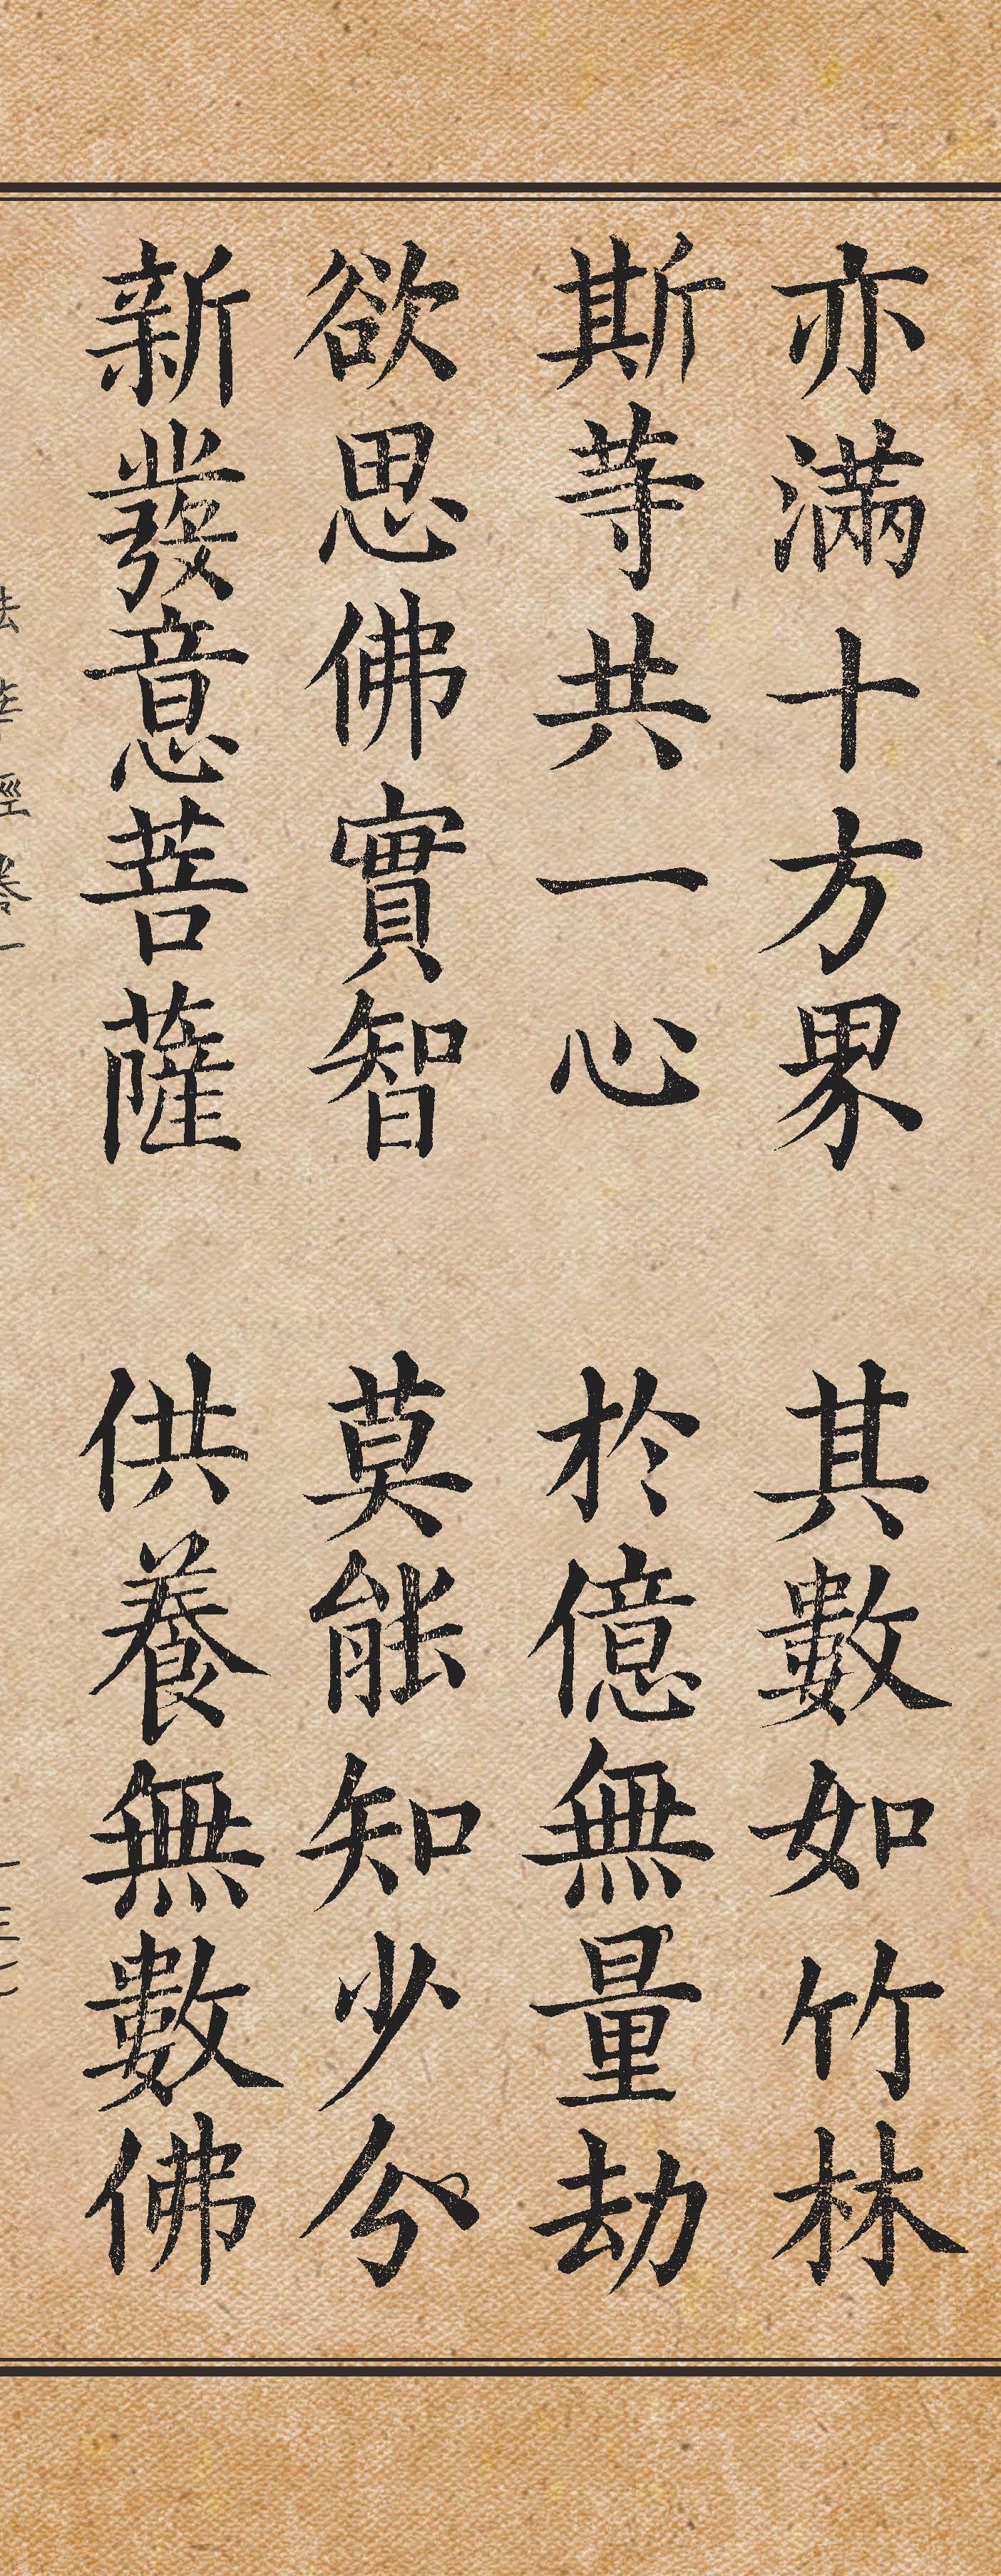 亦滿十方界 其數如竹林
斯等共一心 於億無量劫
欲思佛實智 莫能知少分
新發意菩薩 供養無數佛
法華經卷一